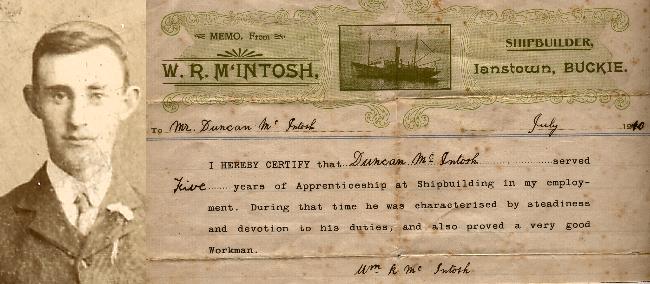 MEMO, From
W. R. M'INTOSH,
SHIPBUILDER,
Ianstown, BUCKIE.
To Mr. Duncan Mc Intosh July 1910
I HEREBY CERTIFY that Duncan Mc Intosh served
Five years of Apprenticeship at Shipbuilding in my employ-
ment. During that time he was characterised by steadiness
and devotion to his duties, and also proved a very good
Workman.
Wm R Mc Intosh